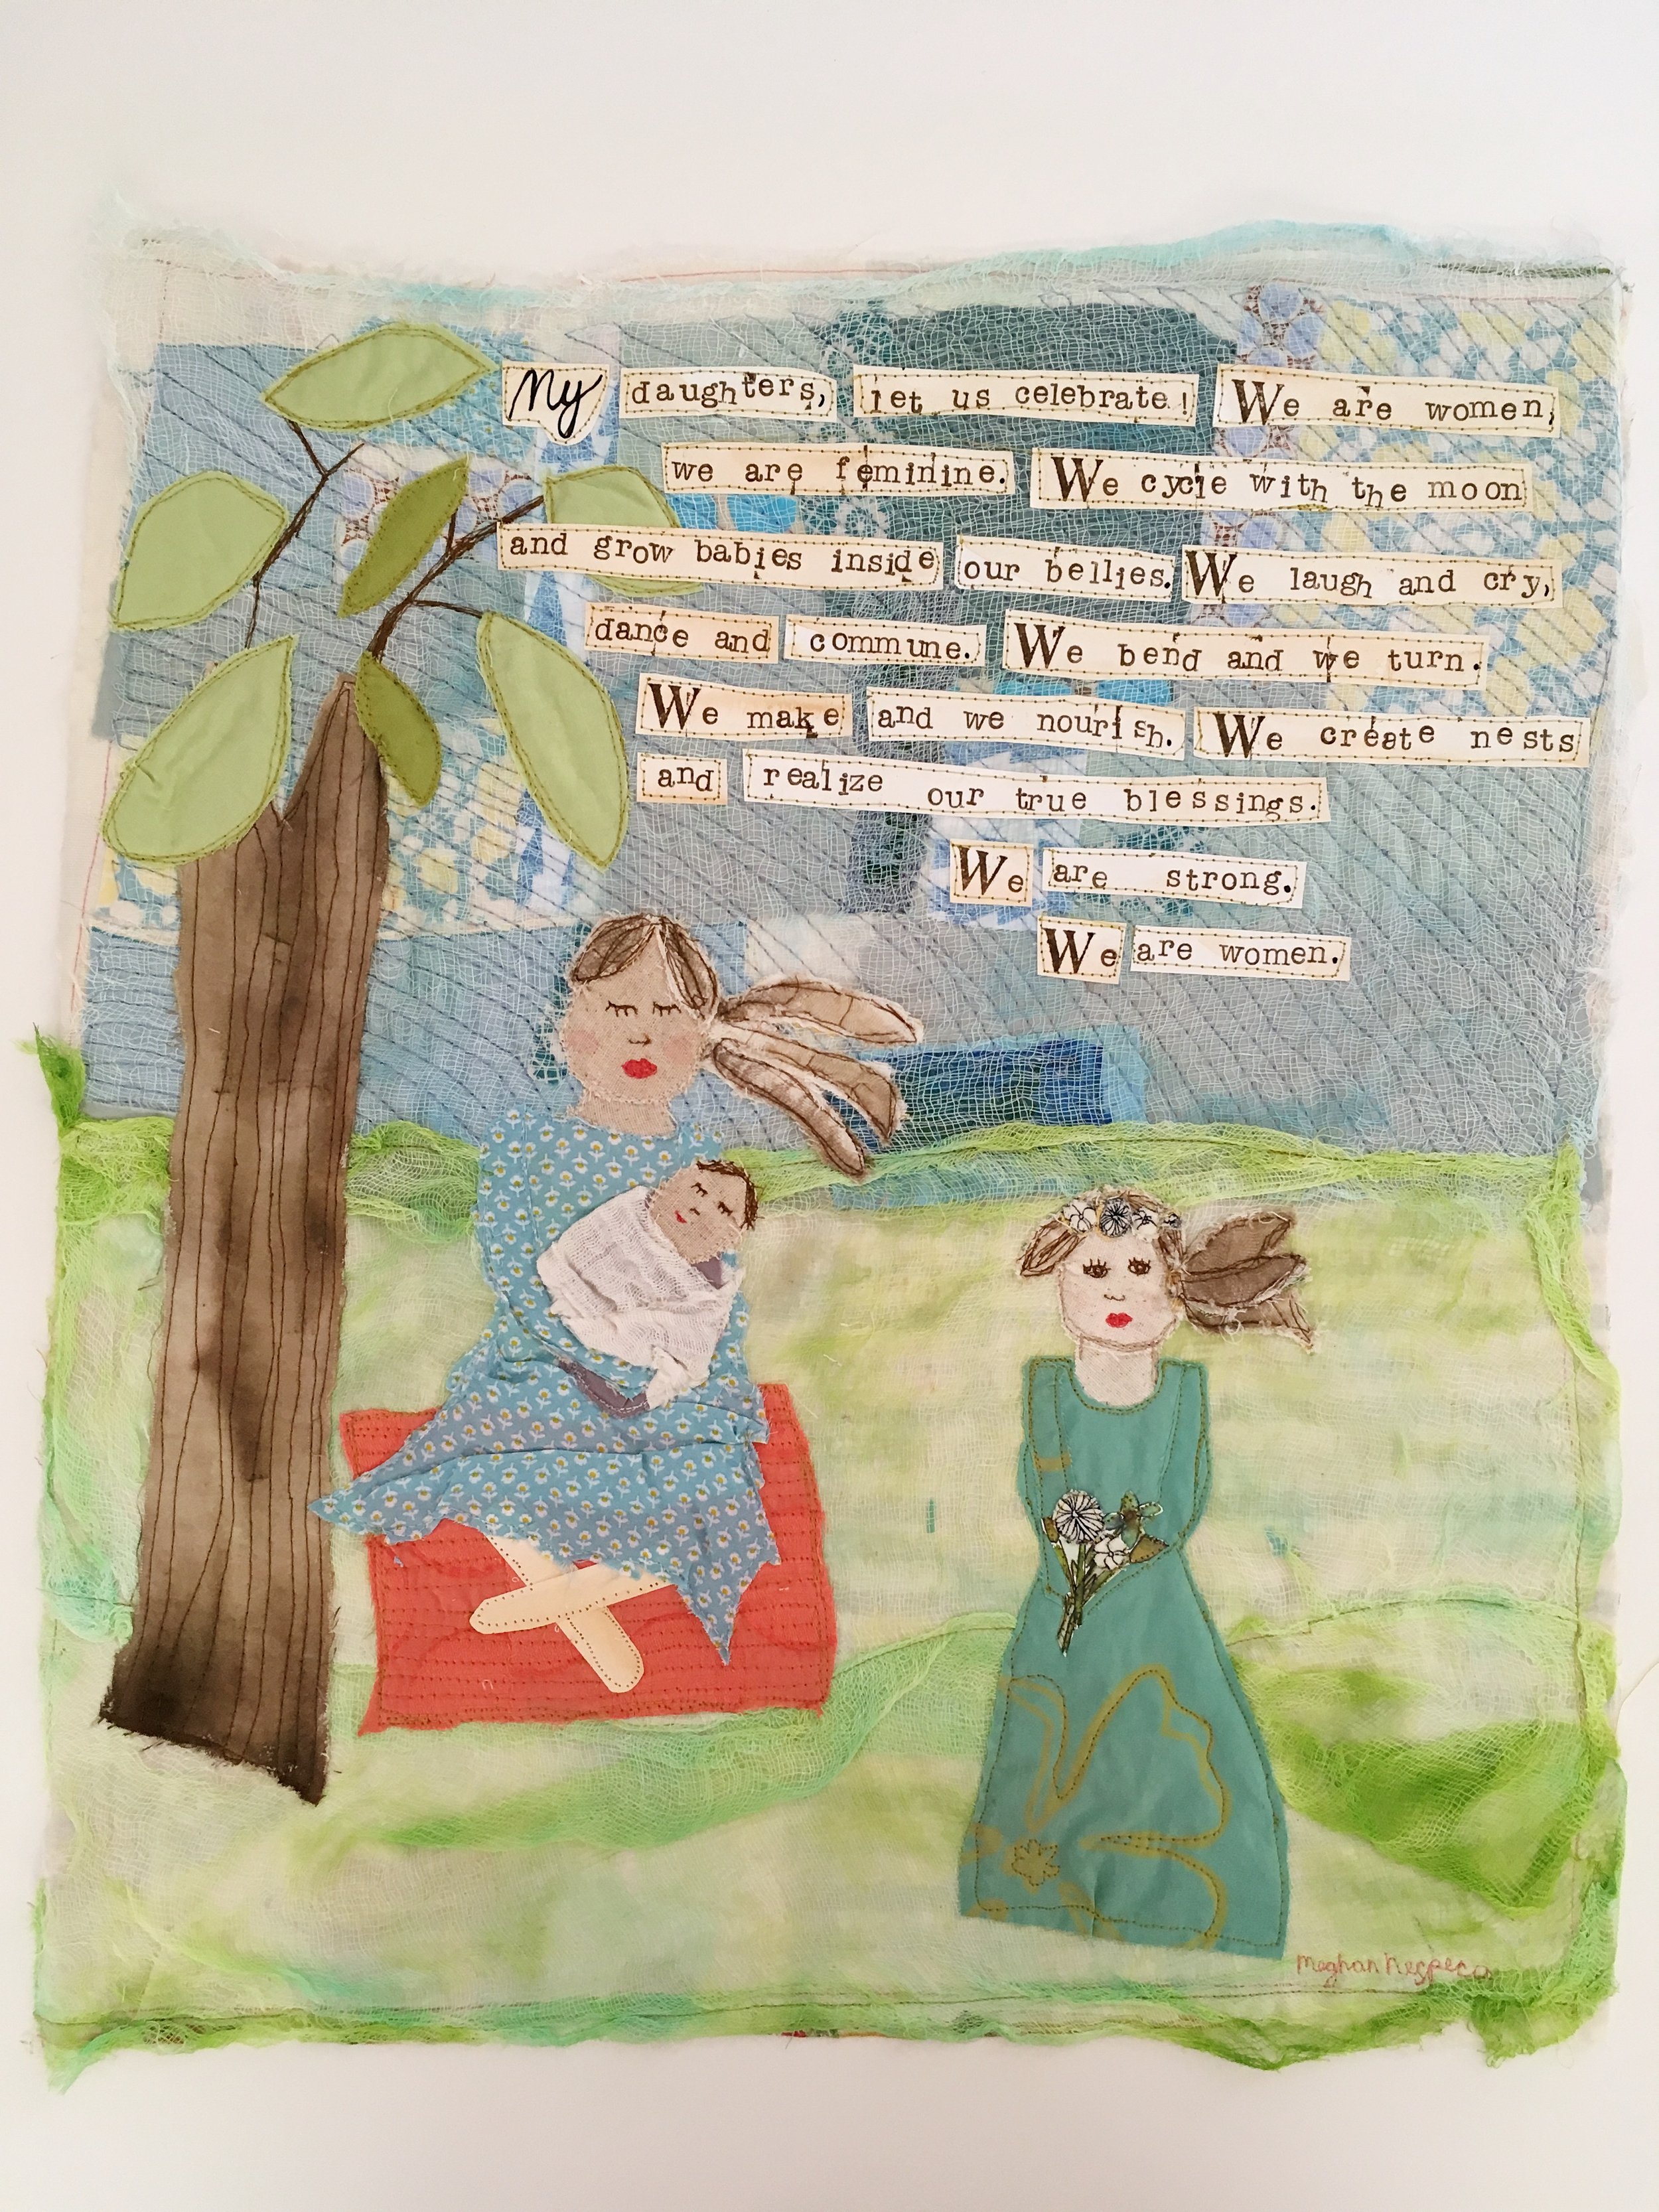 My daughters, let us celebrate! We are women,
we are feminine. We cycle with the moon
and grow babies inside our bellies. We laugh and cry,
dance and commune. We bend and we turn.
We make and we nourish. We create nests
and realize our true blessings.
We are strong.
We are women.
Meghan